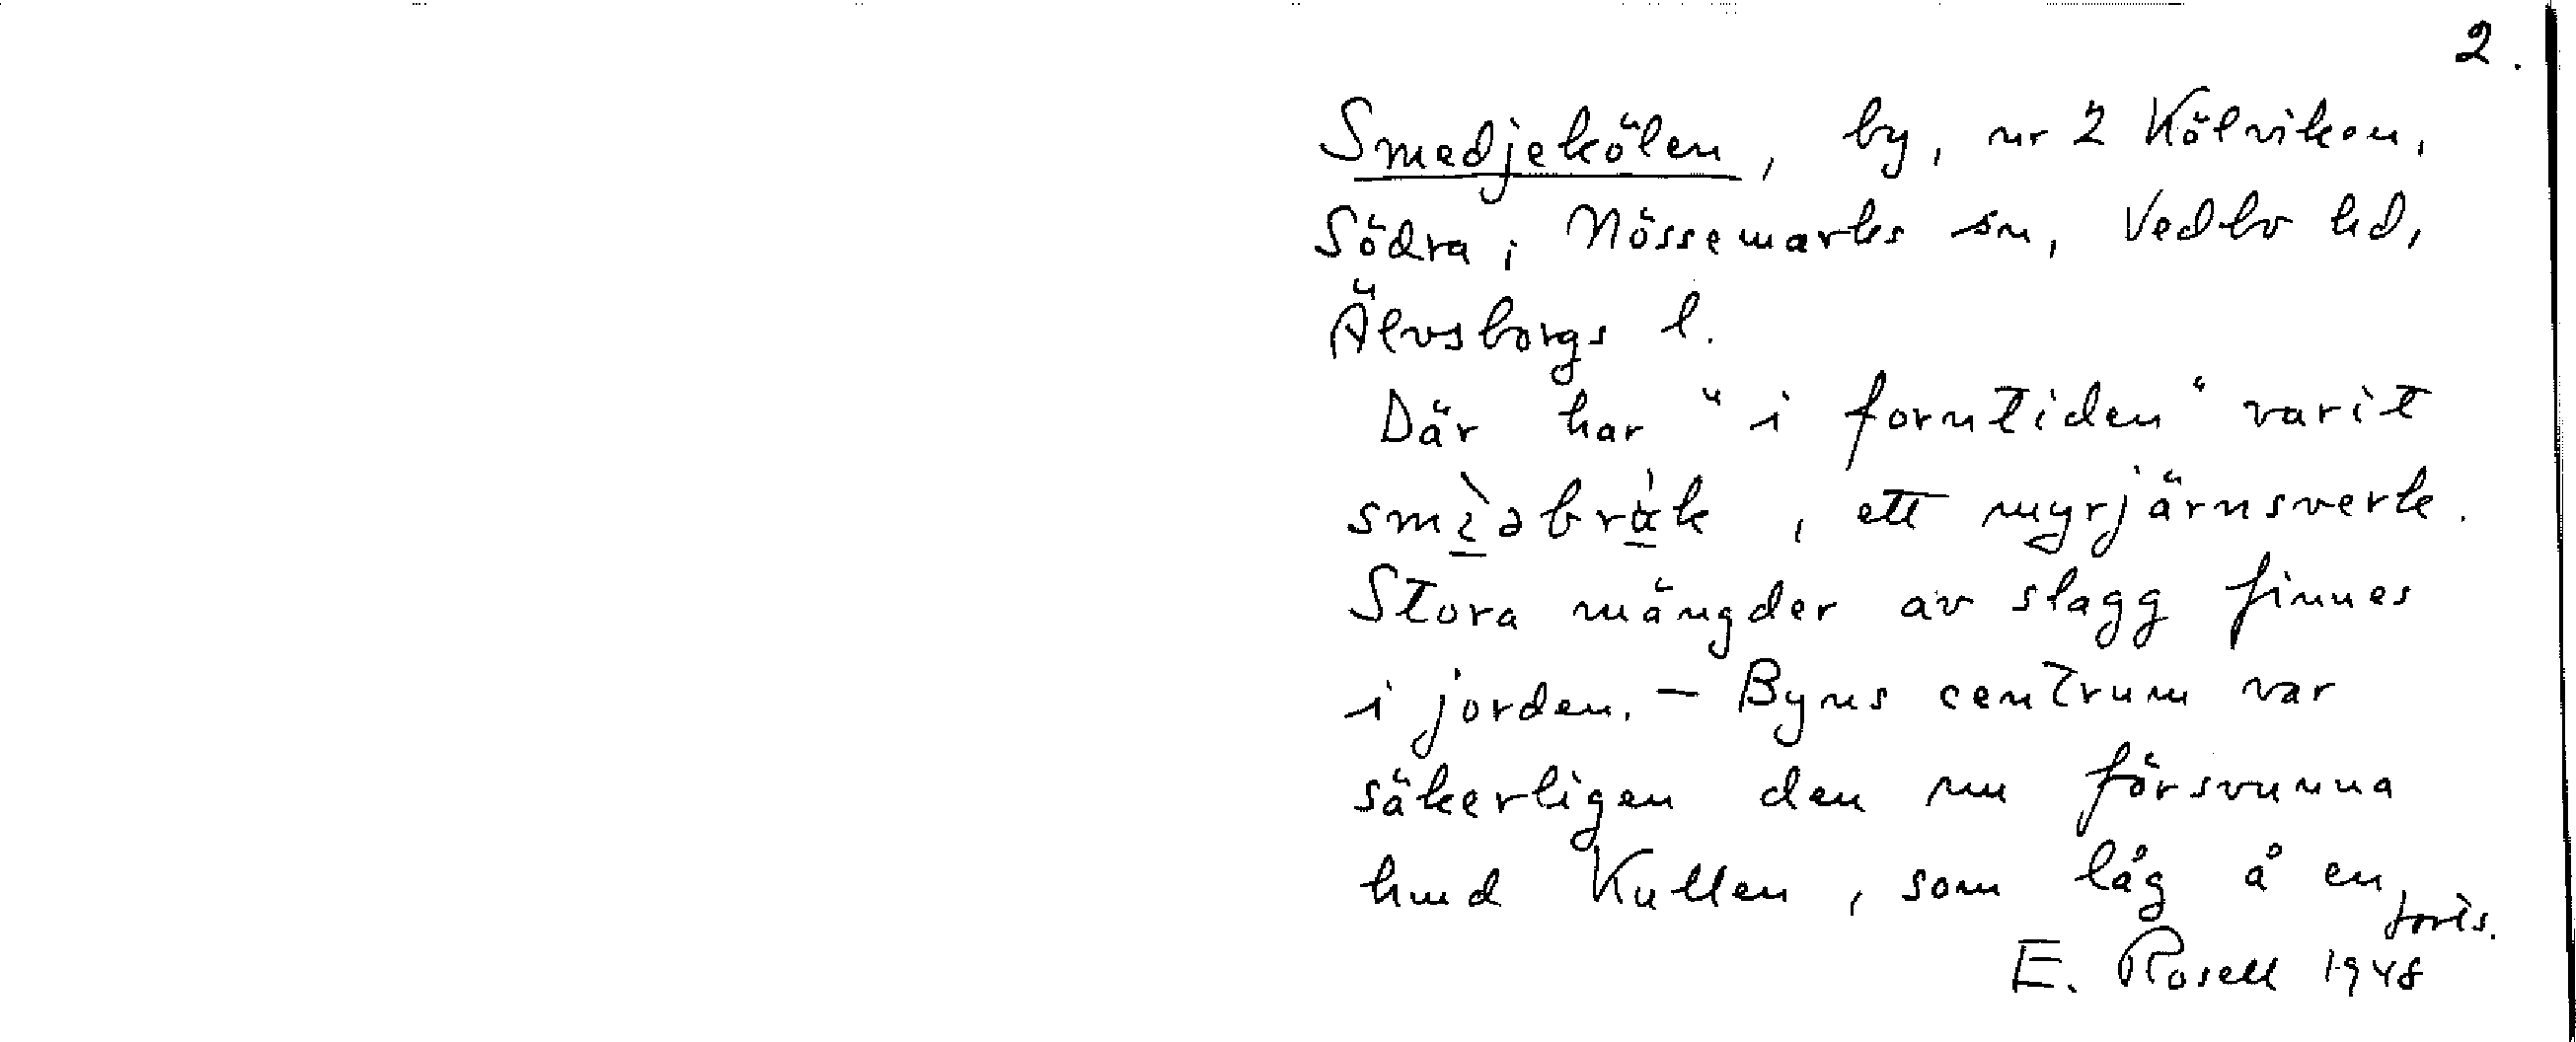 2.
Smedjekölen, by, nr 2 Kölviken,
Södra, Nössemarks sn, Vedbo hd,
Älvsborgs l.
Där har "i forntiden" varit
, ett myrjärnsverk.
Stora mängder av slagg finnes
i jorden. – Byns centrum var
säkerligen den nu försvunna
hmd Kullen, som låg å en
forts.
E. Rosell 1948